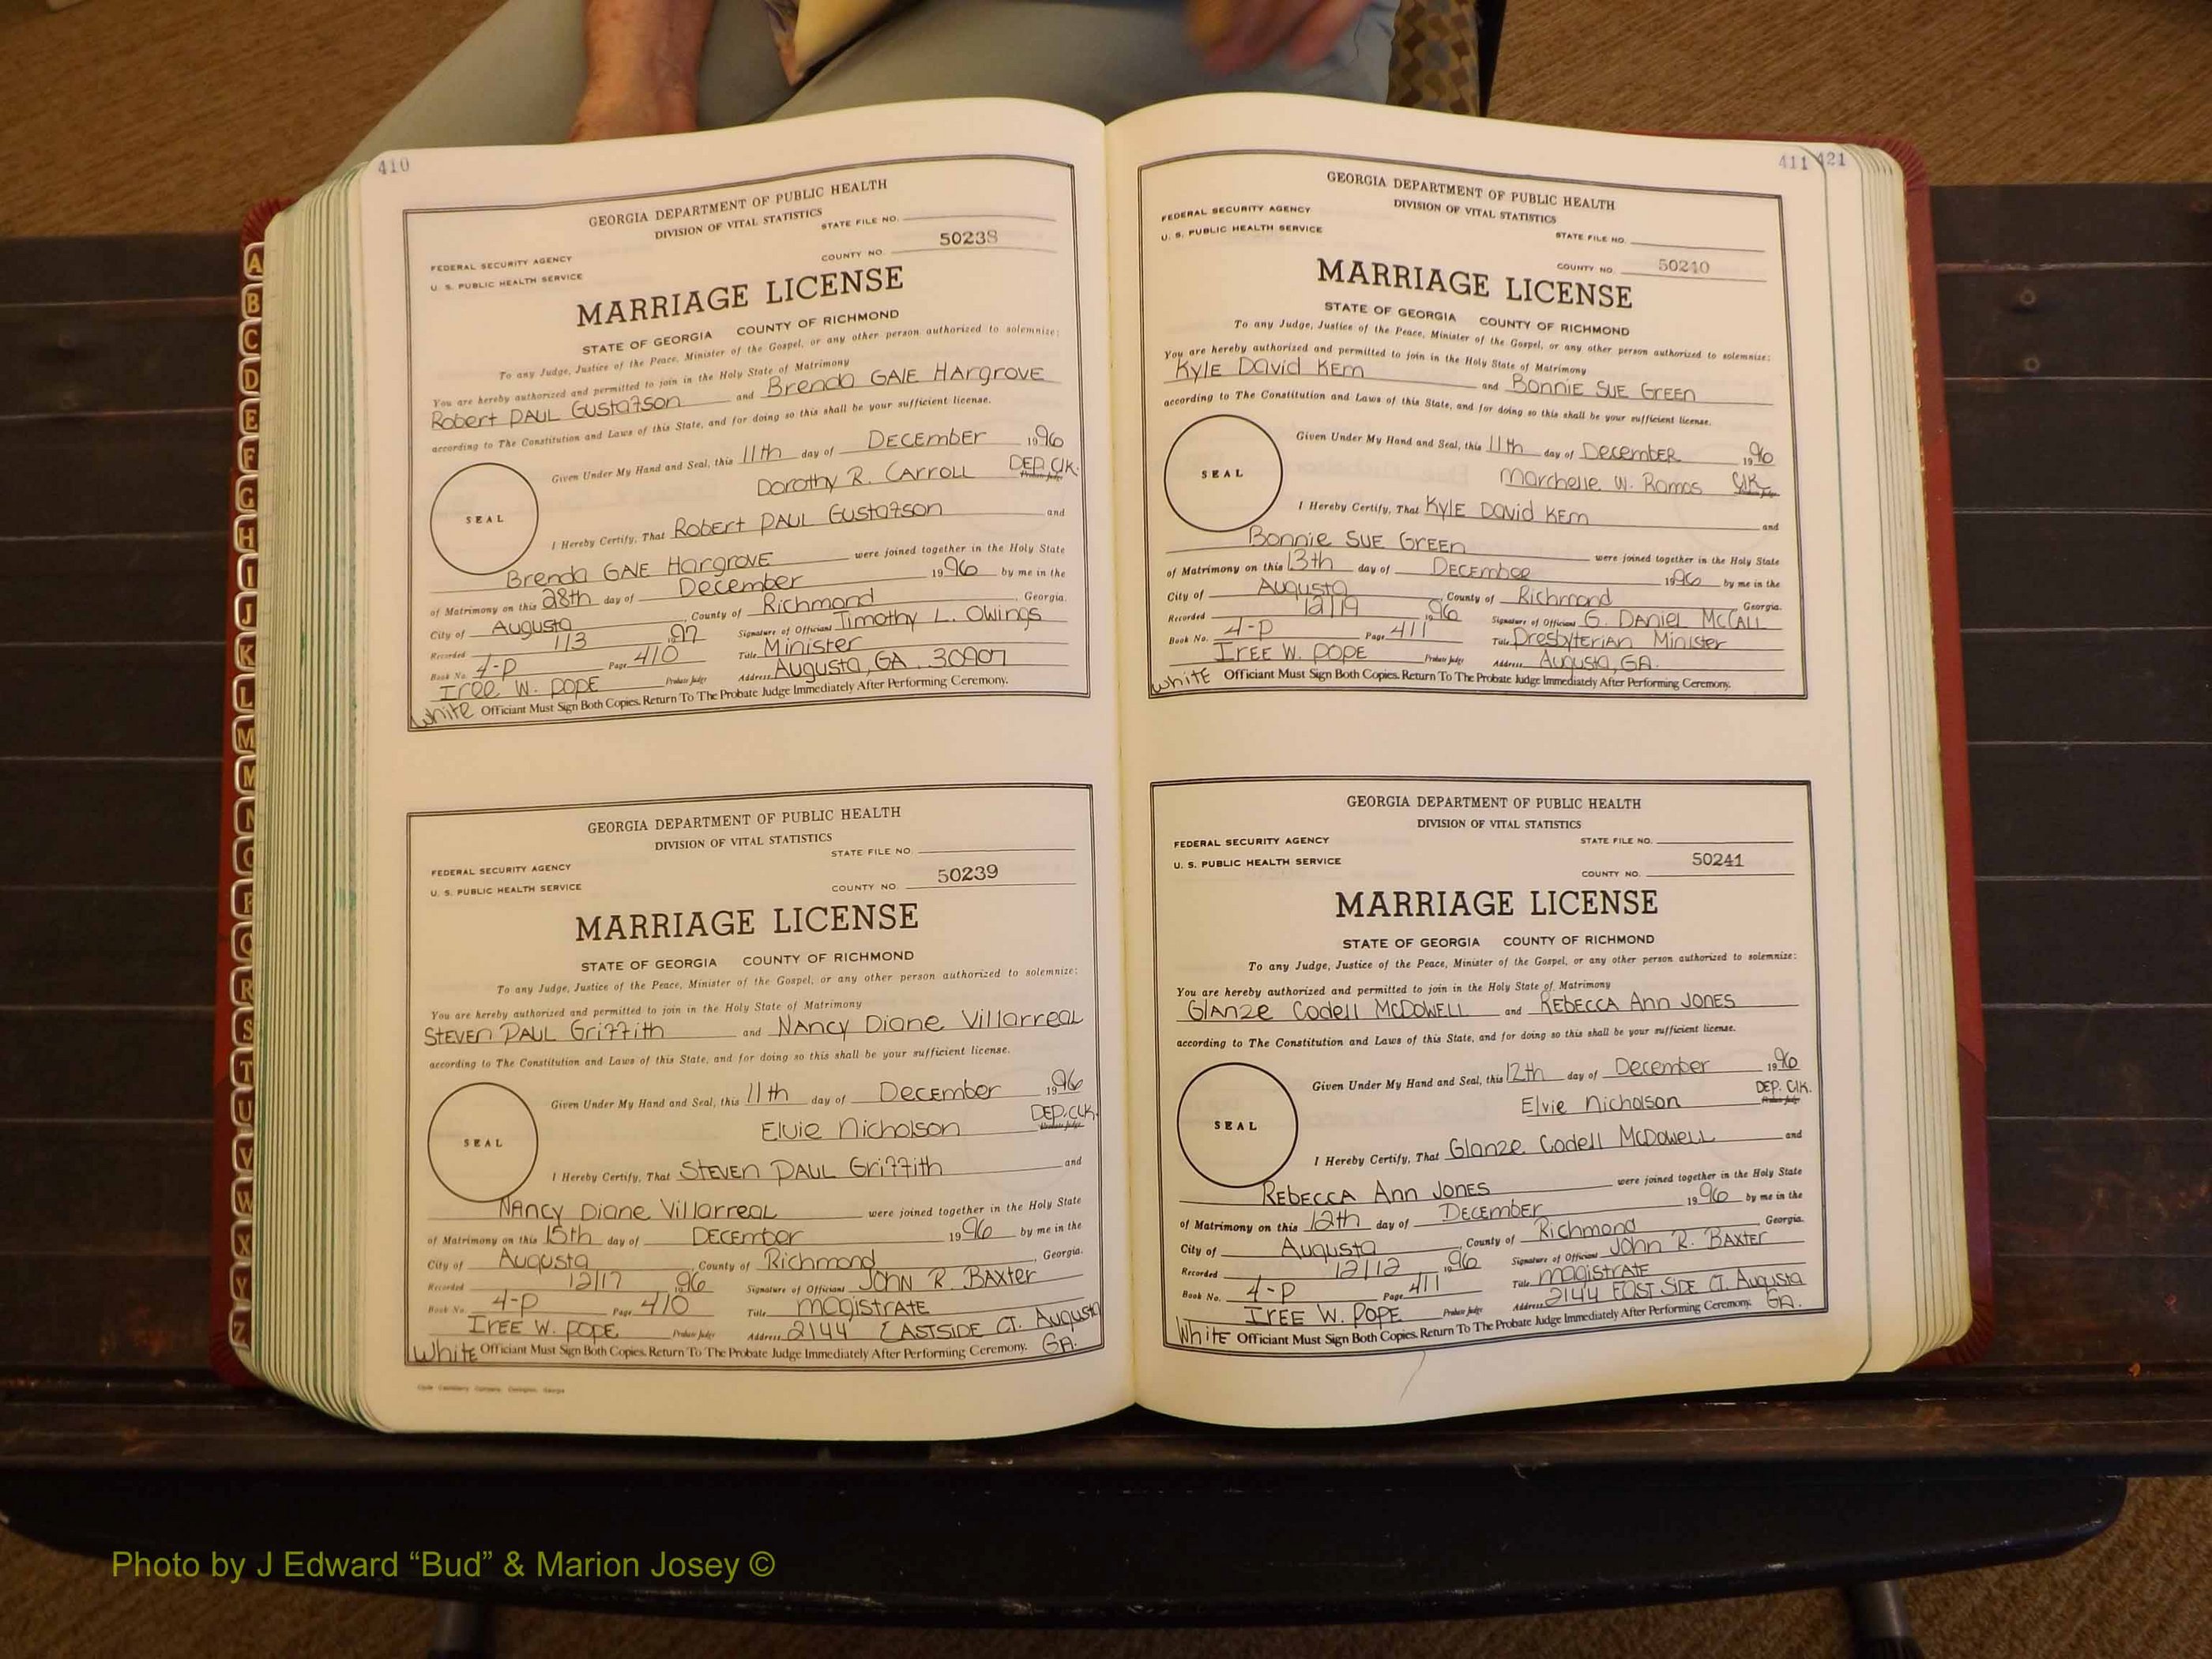 410
GEORGIA DEPARTMENT OF PUBLIC HEALTH
DIVISION OF VITAL STATISTICS
STATE FILE NO.
50238
COUNTY NO.
FEDERAL SECURITY AGENCY
U. S. PUBLIC HEALTH SERVICE
MARRIAGE LICENSE
STATE OF GEORGIA COUNTY OF RICHMOND
To any Judge, Justice of the Peace, Minister of the Gospel, or any other person authorized to solemnize:
You are hereby authorized and permitted to join in the Holy State of Matrimony
Robert PAUL Gustafson and Brenda GAIE HArgrovE
according to The Constitution and Laws of this State, and for doing so this shall be your sufficient license.
Given Under My Hand and Seal, this 11th day of DECEMber 1996
Dorothy R. CARROLL DEP. Clk.
SEAL
I Hereby Certify, That RobErt PAUL Gustafson and
Brenda GAIE HargrovE were joined together in the Holy State
of Matrimony on this 28th day of December 1996 by me in the
City of Augusta, County of Richmond, Georgia.
Recorded 1/3 1997 Signature of Officiant Timothy L. Owings
Book No. 4-P Page 410 Title Minister
IrEE W. POPE Probate Judge Address Augusta, GA. 30907
White Officiant Must Sign Both Copies. Return To The Probate Judge Immediately After Performing Ceremony.
GEORGIA DEPARTMENT OF PUBLIC HEALTH
DIVISION OF VITAL STATISTICS
STATE FILE NO.
FEDERAL SECURITY AGENCY
U. S. PUBLIC HEALTH SERVICE
COUNTY NO. 50239
MARRIAGE LICENSE
STATE OF GEORGIA COUNTY OF RICHMOND
To any Judge, Justice of the Peace, Minister of the Gospel, or any other person authorized to solemnize:
You are hereby authorized and permitted to join in the Holy State of Matrimony
STEVEN PAUL Griffith and NAncy Diane VillarreaL
according to The Constitution and Laws of this State, and for doing so this shall be your sufficient license.
Given Under My Hand and Seal, this 11th day of DECEMber 1996
Elvie Nicholson DEP. CLK.
SEAL
I Hereby Certify, That STEVEN PAUL Griffith and
NAncy Diane VillarreaL were joined together in the Holy State
of Matrimony on this 15th day of DECEMber 1996 by me in the
City of Augusta, County of Richmond, Georgia.
Recorded 12/17 1996 Signature of Officiant JOHN R. BAXter
Book No. 4-P Page 410 Title magistrATE
IrEE W. POPE Probate Judge Address 2144 EASTSIDE CT. Augusta GA.
White Officiant Must Sign Both Copies. Return To The Probate Judge Immediately After Performing Ceremony.
411 421
GEORGIA DEPARTMENT OF PUBLIC HEALTH
DIVISION OF VITAL STATISTICS
FEDERAL SECURITY AGENCY
U. S. PUBLIC HEALTH SERVICE
STATE FILE NO.
COUNTY NO. 50240
MARRIAGE LICENSE
STATE OF GEORGIA COUNTY OF RICHMOND
To any Judge, Justice of the Peace, Minister of the Gospel, or any other person authorized to solemnize:
You are hereby authorized and permitted to join in the Holy State of Matrimony
KylE David and BonniE SUE GREEN
according to The Constitution and Laws of this State, and for doing so this shall be your sufficient license.
Given Under My Hand and Seal, this 11th day of DecembER 1996
Marchelle W. Ramos Clk.
SEAL
I Hereby Certify, That KylE David and
Bonnie SUE GrEEn were joined together in the Holy State
of Matrimony on this 13th day of December 1996 by me in the
City of Augusta, County of Richmond, Georgia.
Recorded 12/19 1996 Signature of Officiant G. DANIEL McCALL
Book No. 4-P Page 411 Title PresbytERIAN Minister
IrEE W. POPE Probate Judge Address Augusta, GA.
White Officiant Must Sign Both Copies. Return To The Probate Judge Immediately After Performing Ceremony.
GEORGIA DEPARTMENT OF PUBLIC HEALTH
DIVISION OF VITAL STATISTICS
FEDERAL SECURITY AGENCY
U. S. PUBLIC HEALTH SERVICE
STATE FILE NO.
50241
COUNTY NO.
MARRIAGE LICENSE
STATE OF GEORGIA COUNTY OF RICHMOND
To any Judge, Justice of the Peace, Minister of the Gospel, or any other person authorized to solemnize:
You are hereby authorized and permitted to join in the Holy State of Matrimony
Glanze Codell McDOWELL and REBECCA Ann JONES
according to The Constitution and Laws of this State, and for doing so this shall be your sufficient license.
Given Under My Hand and Seal, this 12th day of December 1996
Elvie Nicholson DEP. Clk.
SEAL
I Hereby Certify, That Glanze Codell McDowell and
REBECCA Ann JONES were joined together in the Holy State
of Matrimony on this 12th day of December 1996 by me in the
City of Augusta, County of Richmond, Georgia.
Recorded 12/12 1996 Signature of Officiant John R. BAxter
Book No. 4-P Page 411 Title magistrATE
IrEE W. POPE Probate Judge Address 2144 EAST SIDE CT. Augusta GA.
White Officiant Must Sign Both Copies. Return To The Probate Judge Immediately After Performing Ceremony.
A
B
C
D
E
F
G
H
I
J
K
L
M
M
N
O
P
Q
R
S
T
U
V
W
X
Y
Z
Photo by J Edward “Bud” & Marion Josey ©